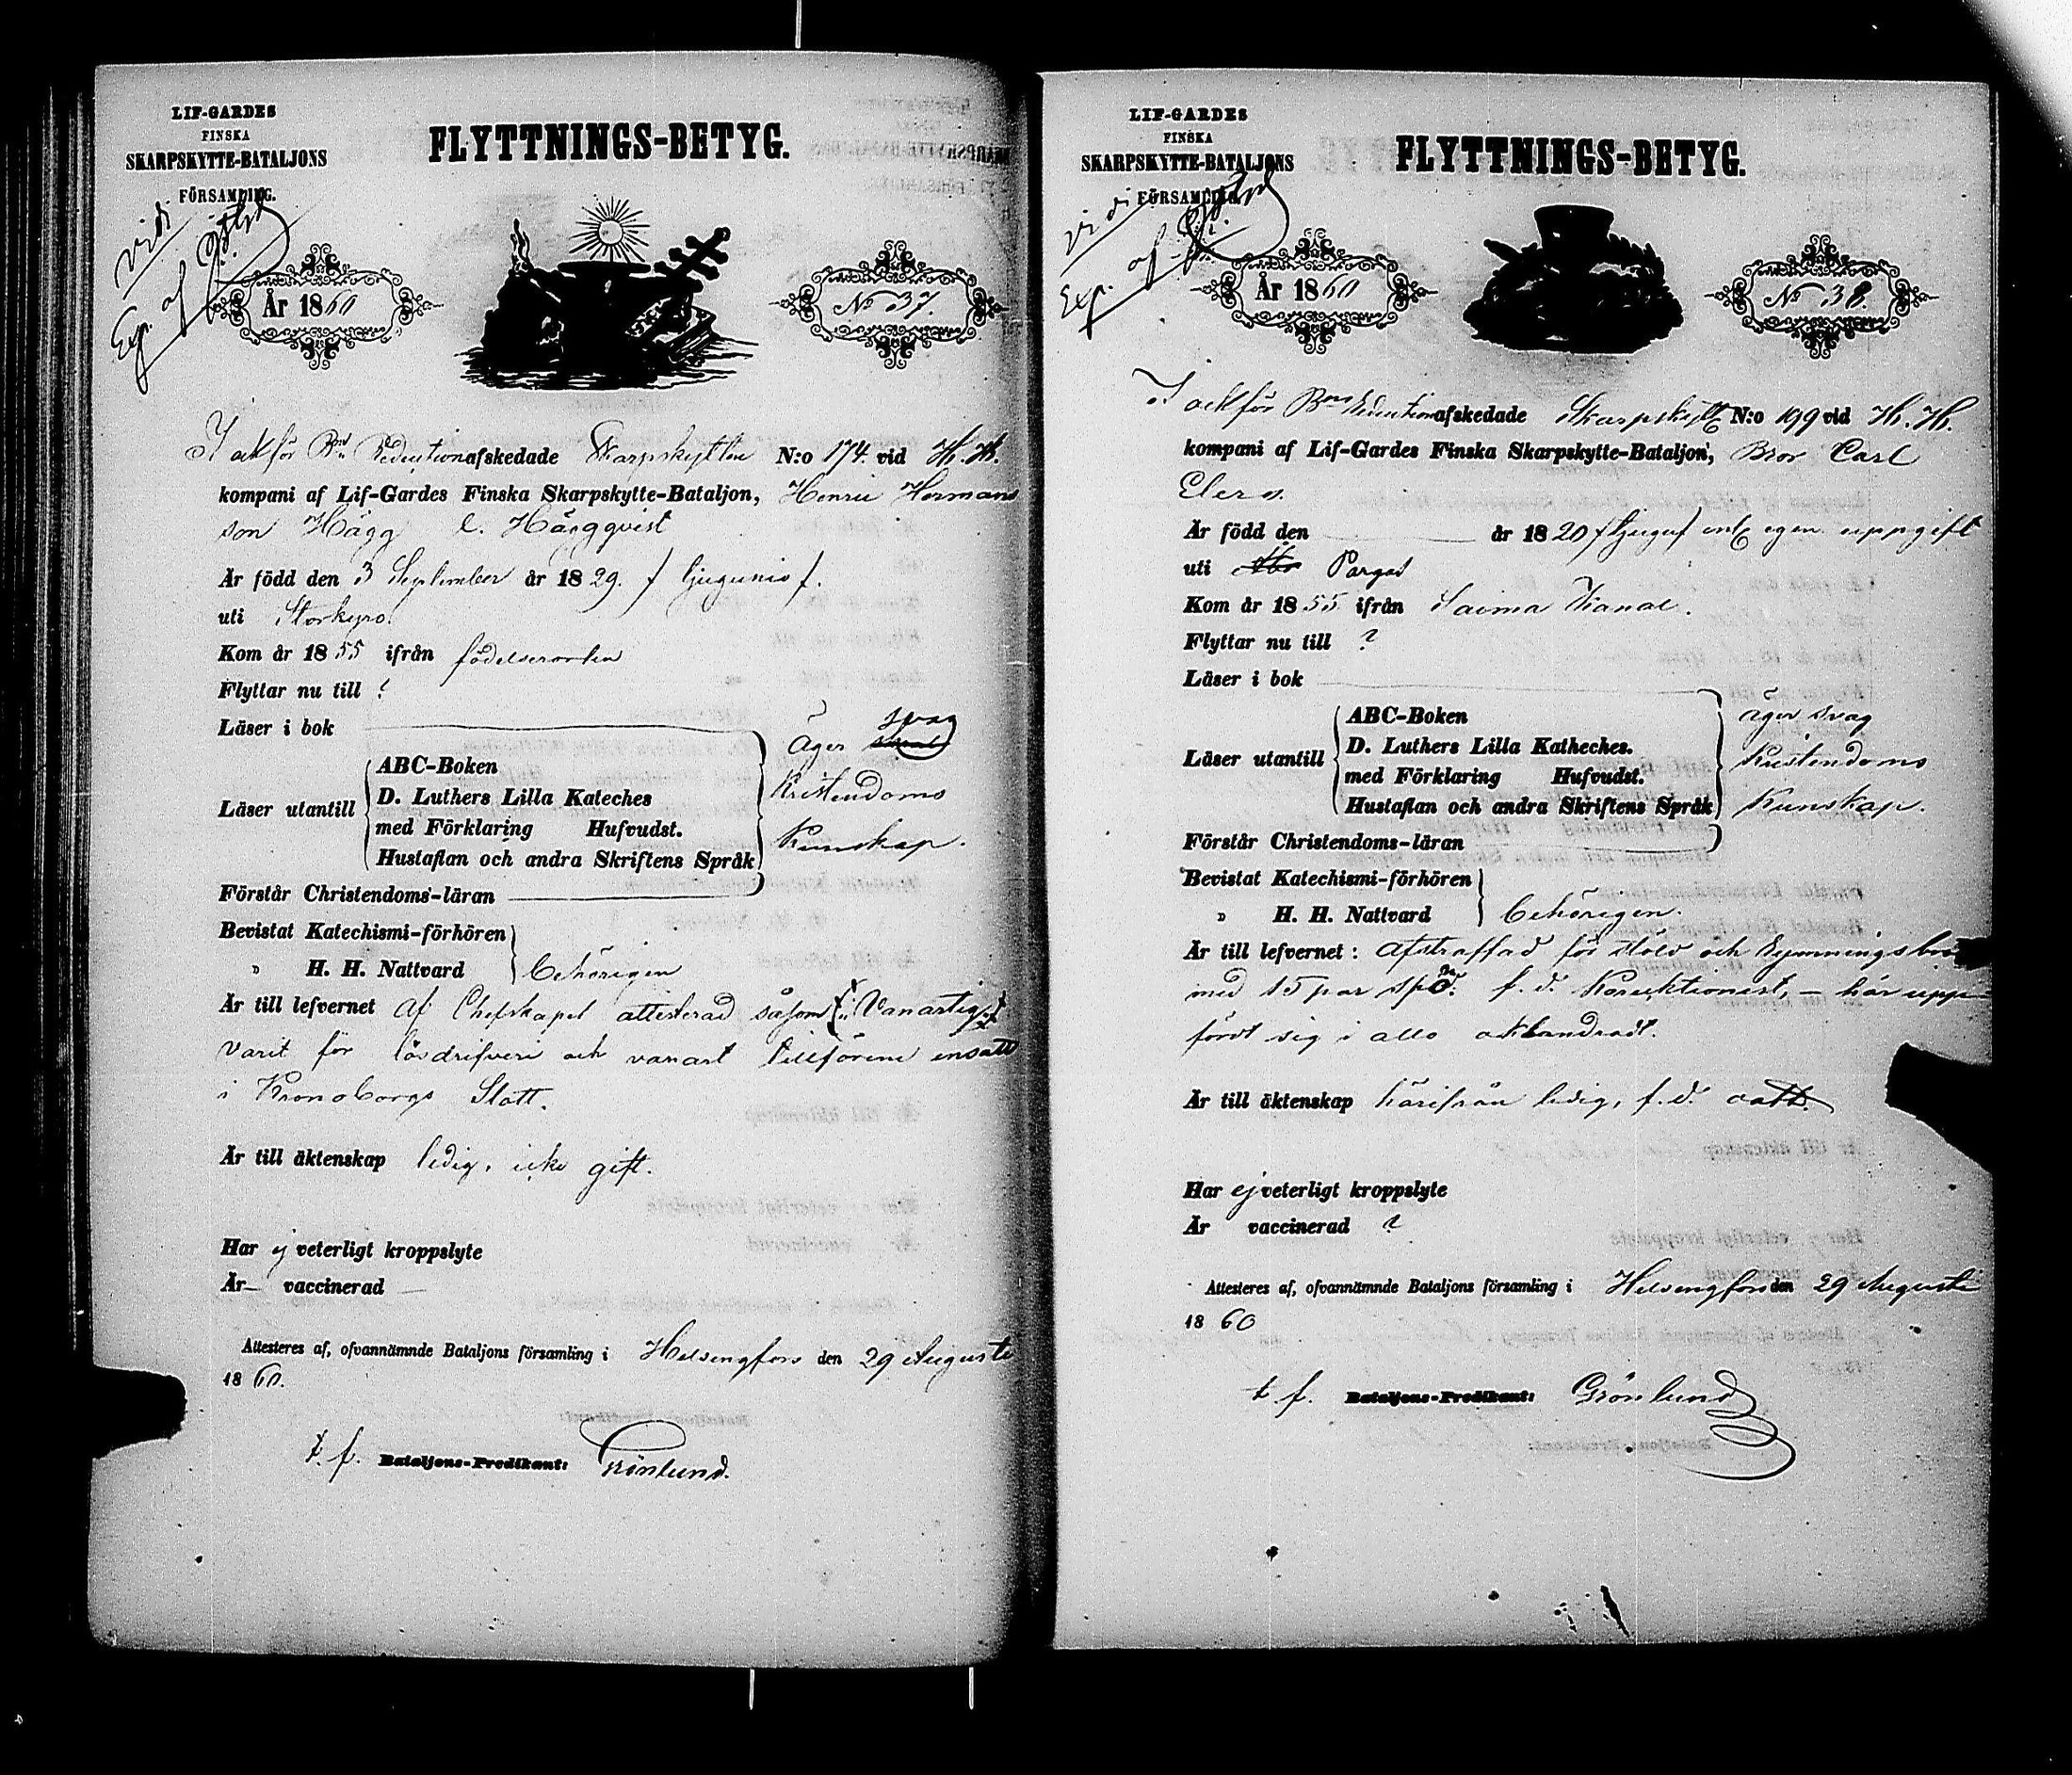 LIF-GARDES
FINSKA
SKARPSKYTTE-BATALJONS
FÖRSAMLING.
FLYTTNINGS-BETYG.
vidi
Exp. af
År 1860
No 37.
afskedade Skarpskytten N:o 174. vid H. H.
kompani af Lif-Gardes Finska Skarpskytte-Bataljon, Henric Hermans
son Hägg l. Häggqvist
Är född den 3 September år 1829. / tjugunio /.
uti Storkyro.
Kom år 1855 ifrån födelseorten
Flyttar nu till ?
Läser i bok
Läser utantill
ABC-Boken
D. Luthers Lilla Kateches
med Förklaring Hufvudst.
Hustaflan och andra Skriftens Språk
äger svag
Kristendoms
Kunskap.
Förstår Christendoms-läran
Bevistat Katechismi-förhören
" H. H. Nattvard behörigen
Är till lefvernet af Chefskapet attesterad såsom "Vanartig"
varit för lösdrifveri och vanart tillförene insatt
i Kronoborgs Slott.
Är till äktenskap ledig, icke gift.
Har ej veterligt kroppslyte
Är — vaccinerad —
Attesteres af, ofvannämnde Bataljons församling i Helsingfors den 29 Augusti
1860.
t. f. Bataljons-Predikant: Grönlund.
LIF-GARDES
FINSKA
SKARPSKYTTE-BATALJONS
FÖRSAMLING.
FLYTTNINGS-BETYG.
vidi
Exp. af
År 1860
No 38.
afskedade Skarpskytt N:o 199 vid H. H.
kompani af Lif-Gardes Finska Skarpskytte-Bataljon, Bror Carl
Elers.
Är född den år 1820 / tjugu / enl. egen uppgift
uti Åbo Pargas
Kom år 1855 ifrån Saima Kanal.
Flyttar nu till ?
Läser i bok
Läser utantill
ABC-Boken
D. Luthers Lilla Katheches.
med Förklaring Hufvudst.
Hustaflan och andra Skriftens Språk
äger svag
Kristendoms
Kunskap.
Förstår Christendoms-läran
Bevistat Katechismi-förhören
" H. H. Nattvard behörigen.
Är till lefvernet: afstraffad för stöld och
med 15 par spö. f. d. Korrektionist, — här upp-
fördt sig i allo oklandradt.
Är till äktenskap härifrån ledig, f. d.
Har ej veterligt kroppslyte
Är vaccinerad ?
Attesteres af, ofvannämnde Bataljons församling i Helsingfors den 29 Augusti
1860
t. f. Bataljons-Predikant: Grönlund